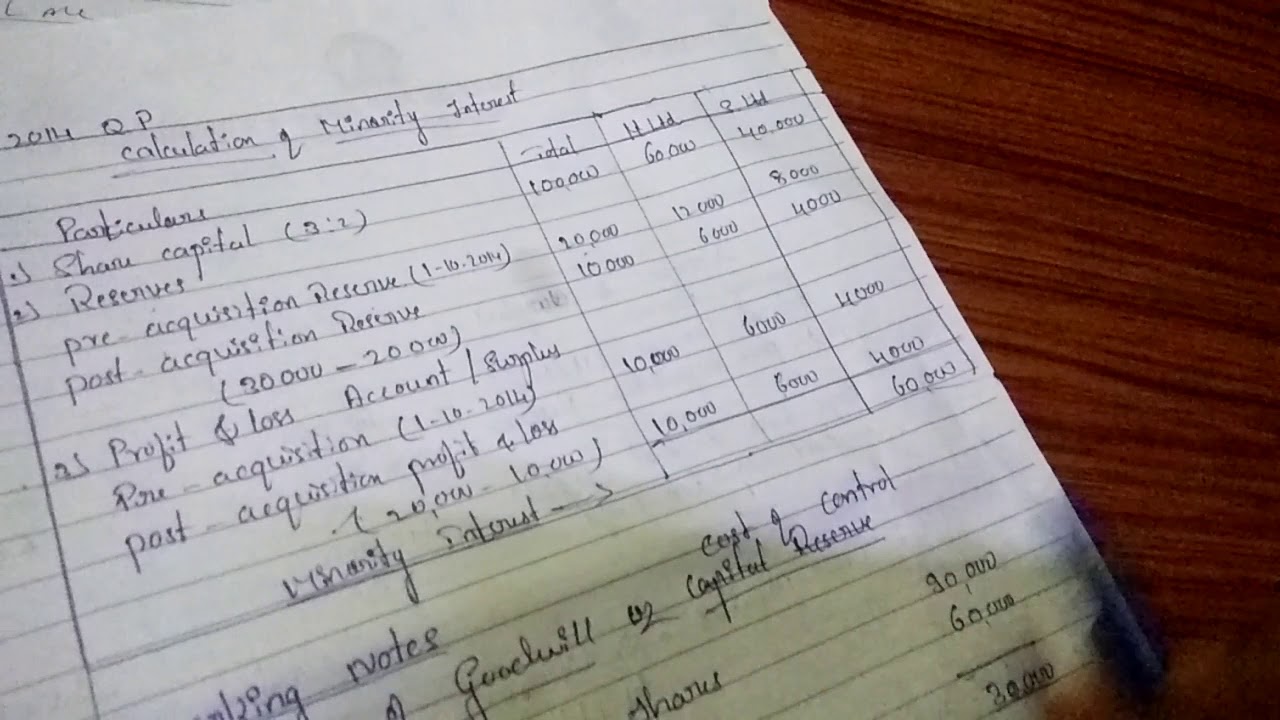 2014 QP
Calculation of Minority Interest
Particulars Total H Ltd S Ltd
1) Share capital (3:2) 100,000 60,000 40,000
2) Reserves
pre-acquisition Reserve (1-10-2014) 20,000 12000 8000
post-acquisition Reserve 10,000 6000 4000
(30,000 - 20,000)
3) Profit & loss Account / Surplus
Pre-acquisition (1-10-2014) 10,000 6000 4000
post-acquisition profit & loss 10,000 6000 4000
(20,000 - 10,000)
Minority interest → 60,000
Notes
Goodwill or cost of control
capital Reserve
90,000
shares 60,000
30,000